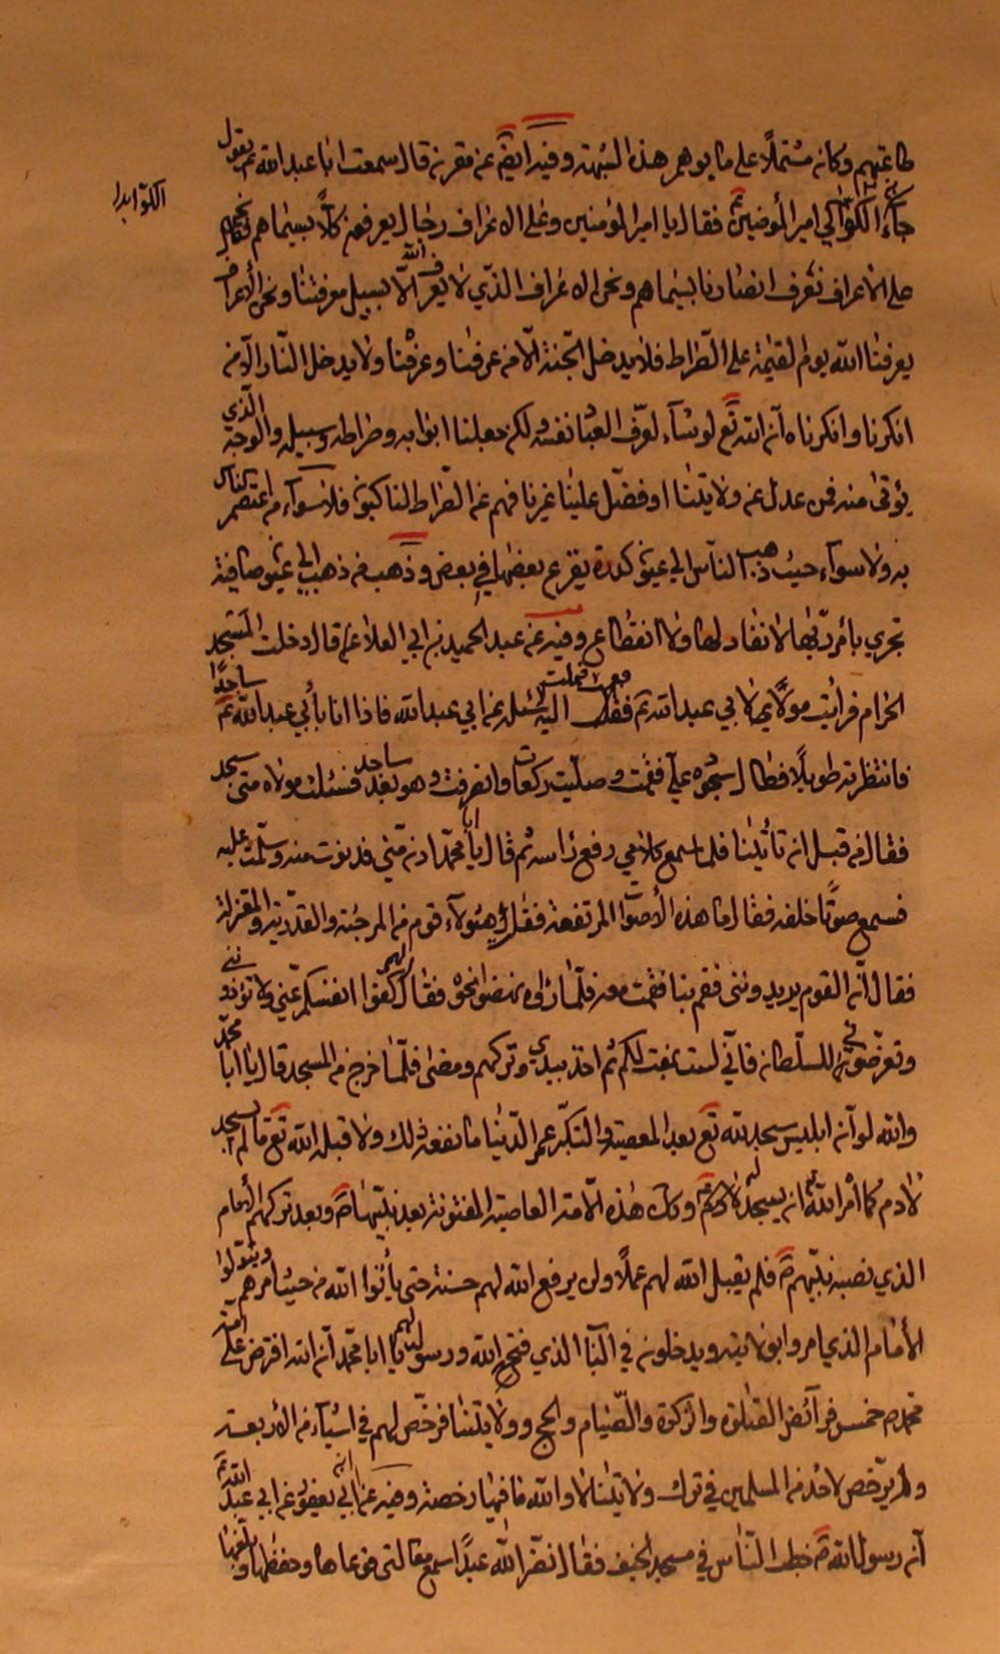 طاعتهم وكان مشتملاً على ما يوهم هذا الشبهة وفيه ايضاً عن مقرن قال سمعت ابا عبد الله ع يقول
جاء ابن الكوّا الى امير المؤمنين ع فقال يا امير المؤمنين وعلى الاعراف رجال يعرفون كلاً بسيماهم فقال نحن
على الاعراف نعرف انصارنا بسيماهم ونحن الاعراف الذي لا يعرف الله الّا بسبيل معرفتنا ونحن الاعراف
يعرفنا الله يوم القيمة على الصراط فلا يدخل الجنة الّا من عرفنا وعرفناه ولا يدخل النار الّا من
انكرنا وانكرناه ان الله تع لو شاء لعرّف العباد نفسه ولكن جعلنا ابوابه وصراطه وسبيله والوجه الذي
يؤتى منه فمن عدل عن ولايتنا او فضّل علينا غيرنا فهم عن الصراط لناكبون فلا سواء من اعتصم الناس
به ولا سواء حيث ذهب الناس الى عيون كدرة يفرع بعضها في بعض وذهب من ذهب الينا الى عيون صافية
تجري بامر ربّها لا نفاد لها ولا انقطاع وفيه عن عبد الحميد بن ابي العلاء قال دخلت المسجد
الحرام فرأيت مولًى لابي عبد الله ع فملت اليه لاسئله عن ابي عبد الله فاذا انا بأبي عبد الله ع ساجدًا
فانتظرته طويلاً فطال سجوده عليّ فقمت وصلّيت ركعات وانصرفت وهو بعد ساجد فسئلت مولاه متى سجد
فقال من قبل ان تأتينا فلما سمع كلامي رفع رأسه ثم قال يا ابا محمد ادن منّي فدنوت منه وسلّمت عليه
فسمع صوتًا خلفه فقال ما هذه الأصوات المرتفعة فقلت هؤلاء قوم من المرجئة والقدرية والمعتزلة
فقال ان القوم يريدونني فقم بنا فقمت معه فلمّا رأوه نهضوا نحوه فقال لهم كفّوا انفسكم عنّي ولا تؤذوني
وتعرّضوني للسلطان فانّي لست بمفت لكم ثم اخذ بيدي وتركهم ومضى فلمّا خرج من المسجد قال يا ابا محمد
والله لو ان ابليس سجد لله تع بعد المعصية والتكبّر عمر الدنيا ما نفعه ذلك ولا قبله الله تع ما لم يسجد
لادم كما امر الله ان يسجد له وكذلك هذه الامّة العاصية المفتونة بعد نبيّها ص وبعد تركهم الامام
الذي نصبه نبيّهم ص فلم يقبل الله لهم عملاً ولن يرفع الله لهم حسنة حتى يأتوا الله من حيث امرهم ويتولّوا
الأمام الذي امروا بولايته ويدخلون في الباب الذي فتحه الله ورسوله لهم يا ابا محمد ان الله افترض على امّة
محمد ص خمس فرائض الصلوة والزكوة والصيام والحج وولايتنا فرخّص لهم في اشياء من الاربعة
ولم يرّخص لاحد من المسلمين في ترك ولايتنا لا والله ما فيها رخصة وفيه عن ابن ابي يعفور عن ابي عبد الله ع
ان رسول الله ص خطب الناس في مسجد الخيف فقال نضّر الله عبدًا سمع مقالتي فوعاها وحفظها وبلّغها
الكوّا ابدا